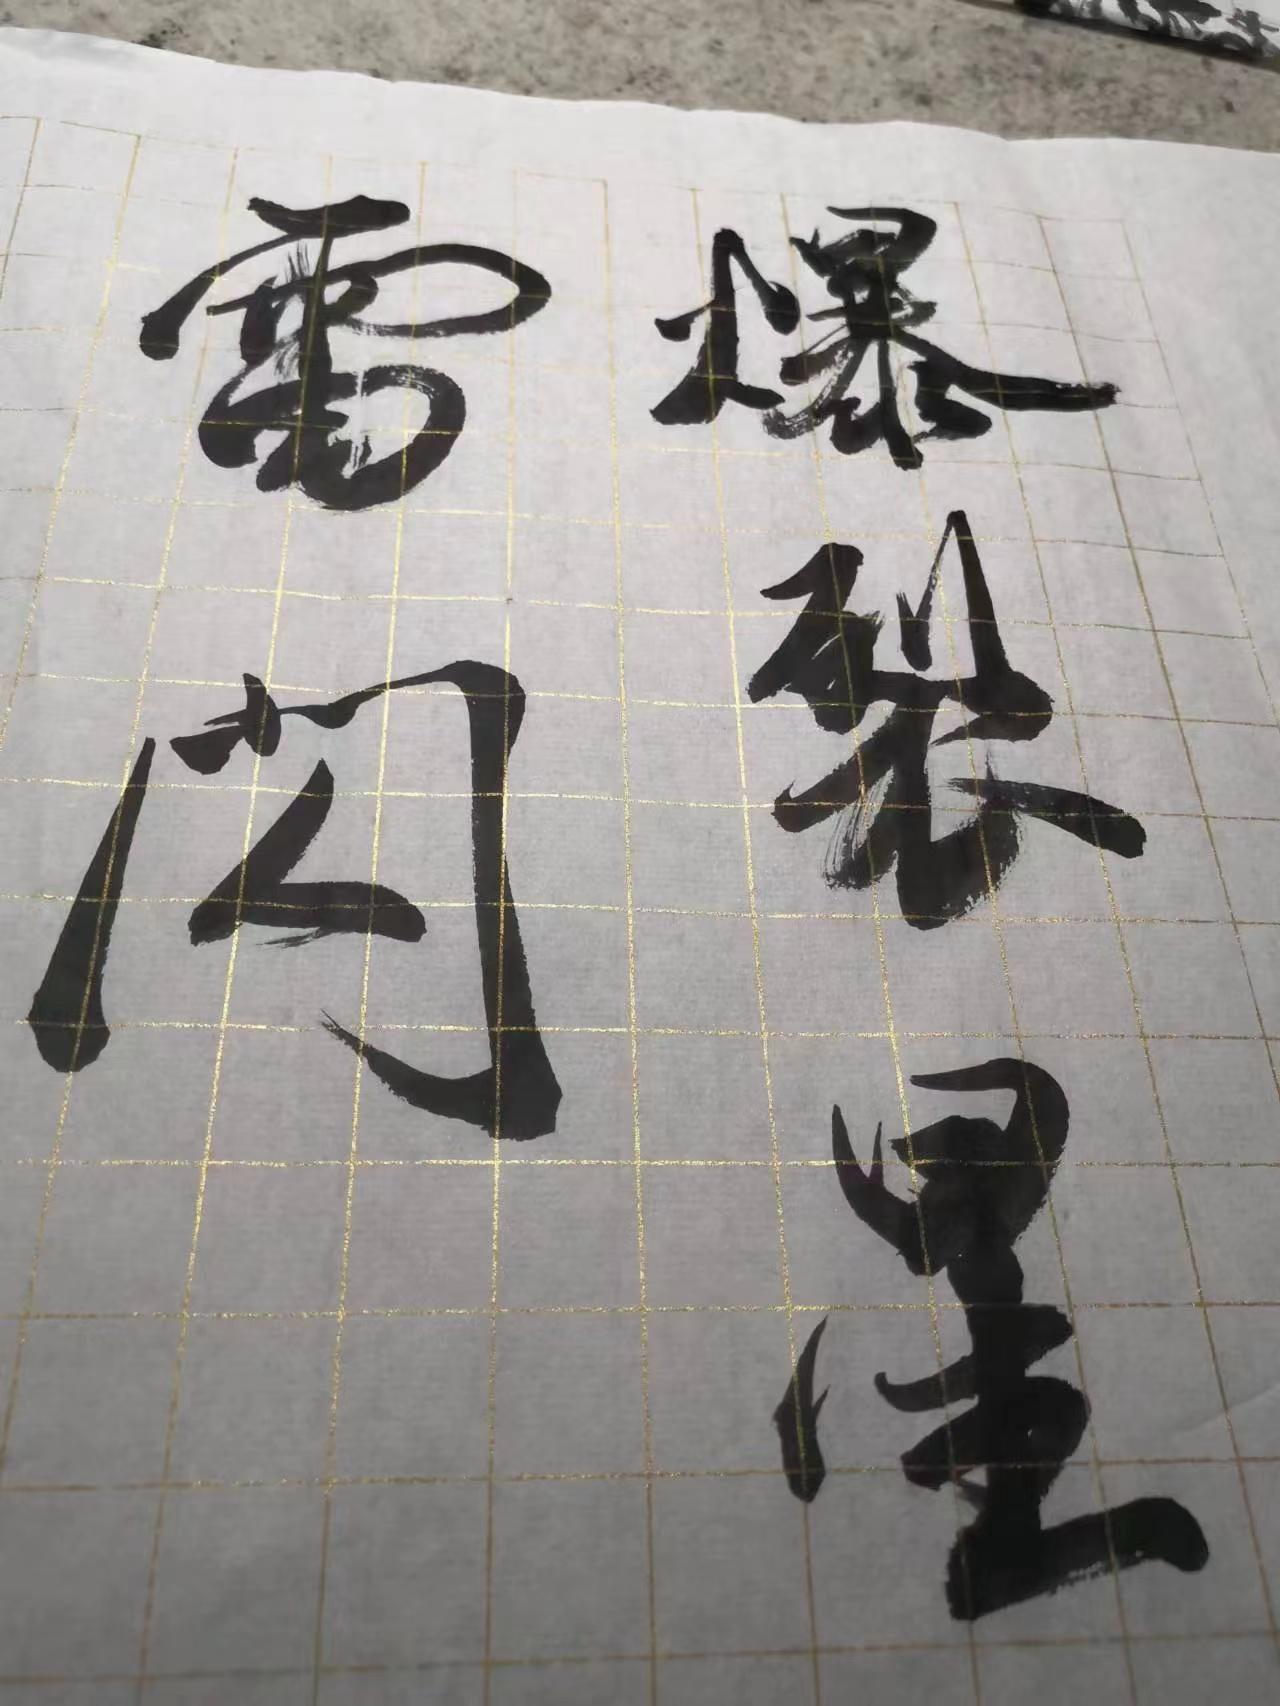 爆裂
雷閃